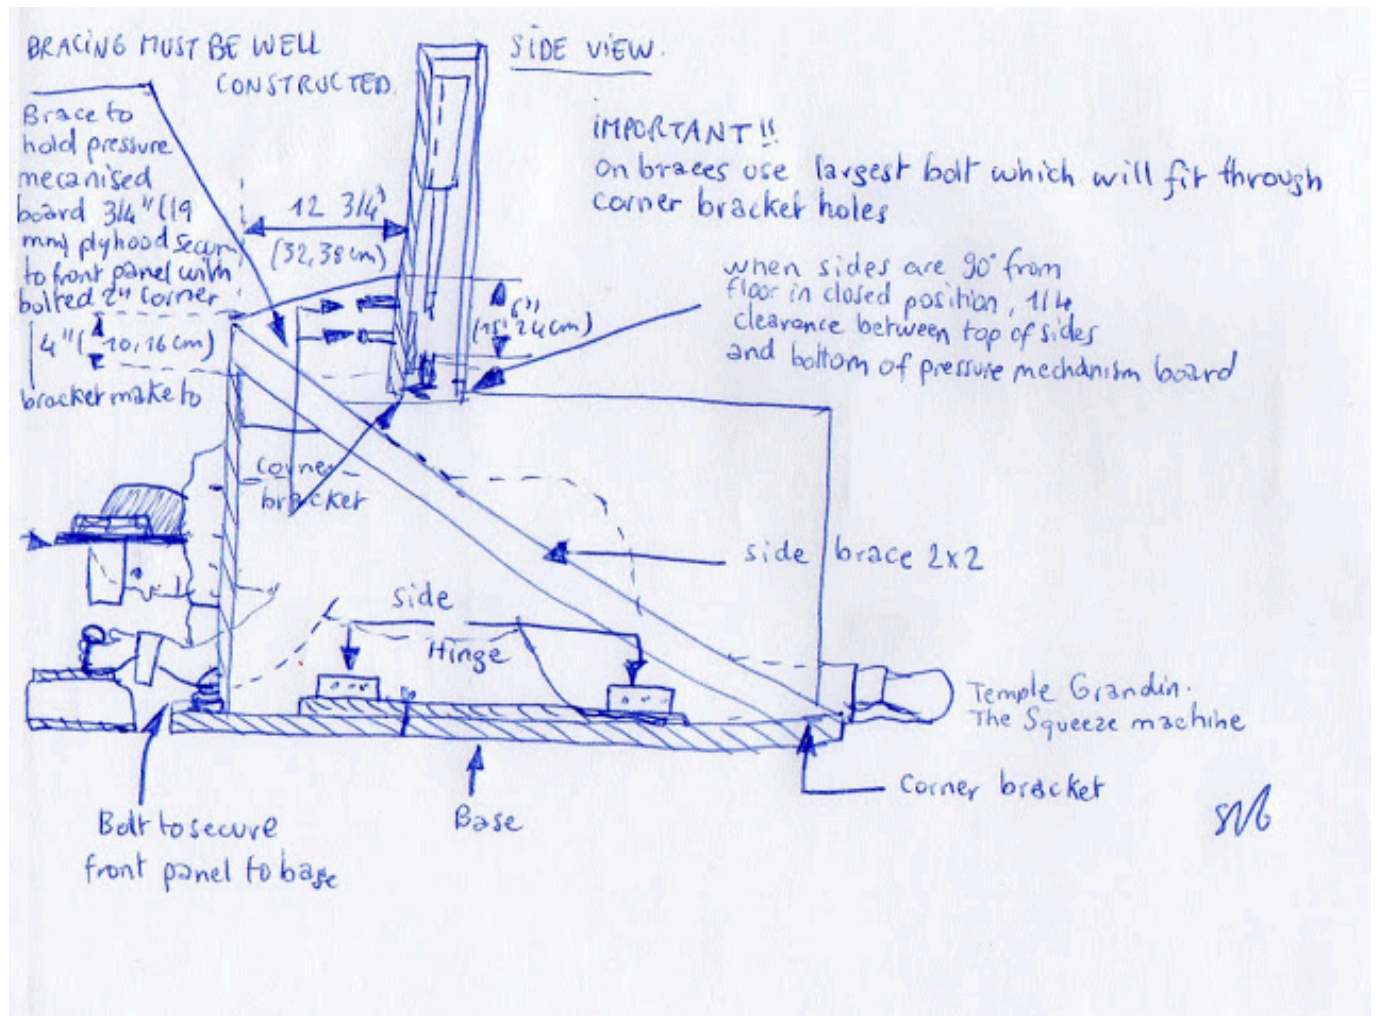 BRACING MUST BE WELL
CONSTRUCTED.
SIDE VIEW.
Brace to
hold pressure
mecanised
board 3/4" (19
mm) plyhood secur
to front panel with
bolted 2" corner
4" (10,16 cm)
bracket make to
12 3/4"
(32,38 cm)
6"
(15,24 cm)
IMPORTANT !!
on braces use largest bolt which will fit through
corner bracket holes
when sides are 90° from
floor in closed position, 1/4
clearance between top of sides
and bottom of pressure mechanism board
corner
bracket
side brace 2x2
side
Hinge
Temple Grandin.
The Squeeze machine
Corner bracket
Base
Bolt to secure
front panel to base